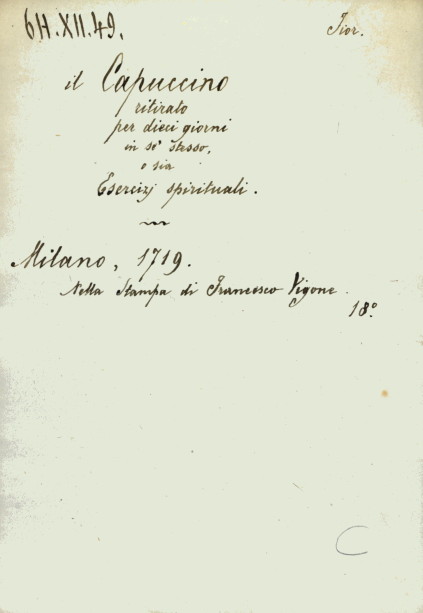 6H.XII.49. Fior.
il Capuccino
ritirato
per dieci giorni
in se' stesso,
o sia
Esercizj spirituali.
Milano, 1719.
Nella Stampa di Francesco Vigone.
18°.
C